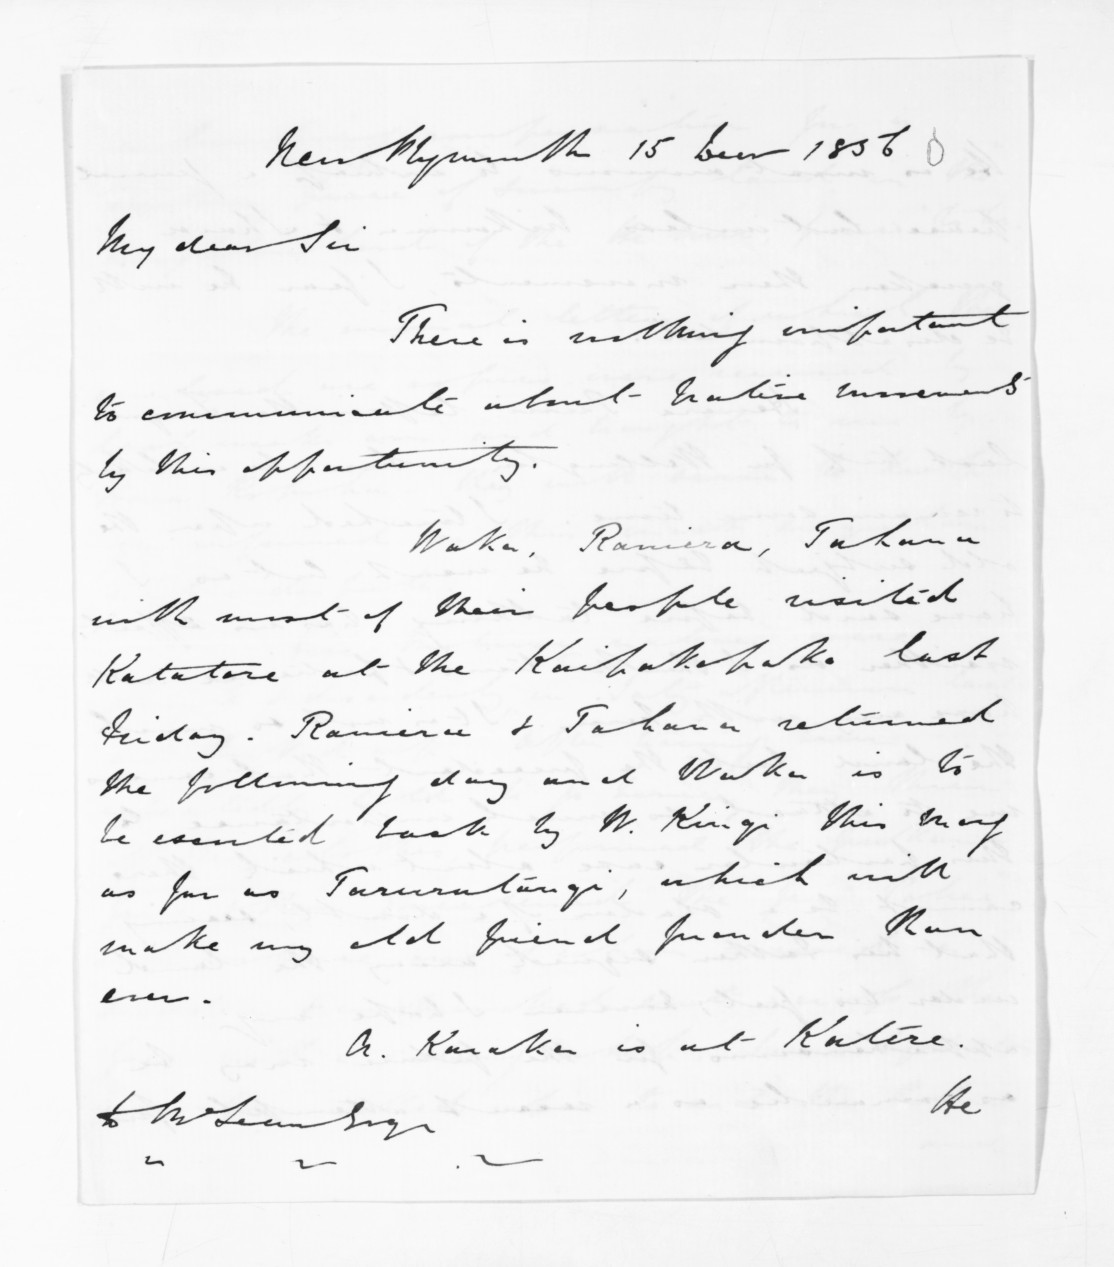 New Plymouth 15 Decr 1856
My dear Sir
There is nothing important
to communicate about Native movements
by this opportunity.
Waka, Raniera, Tahana
with most of their people visited
Katatore at the Kaipakopako last
Friday. Raniera & Tahana returned
the following day and Waka is to
be escorted back by W. Kingi this morng
as far as Tarurutangi, which will
make my old friend prouder than
ever.
A. Karaka is at Katere.
He
D McLean Esqr